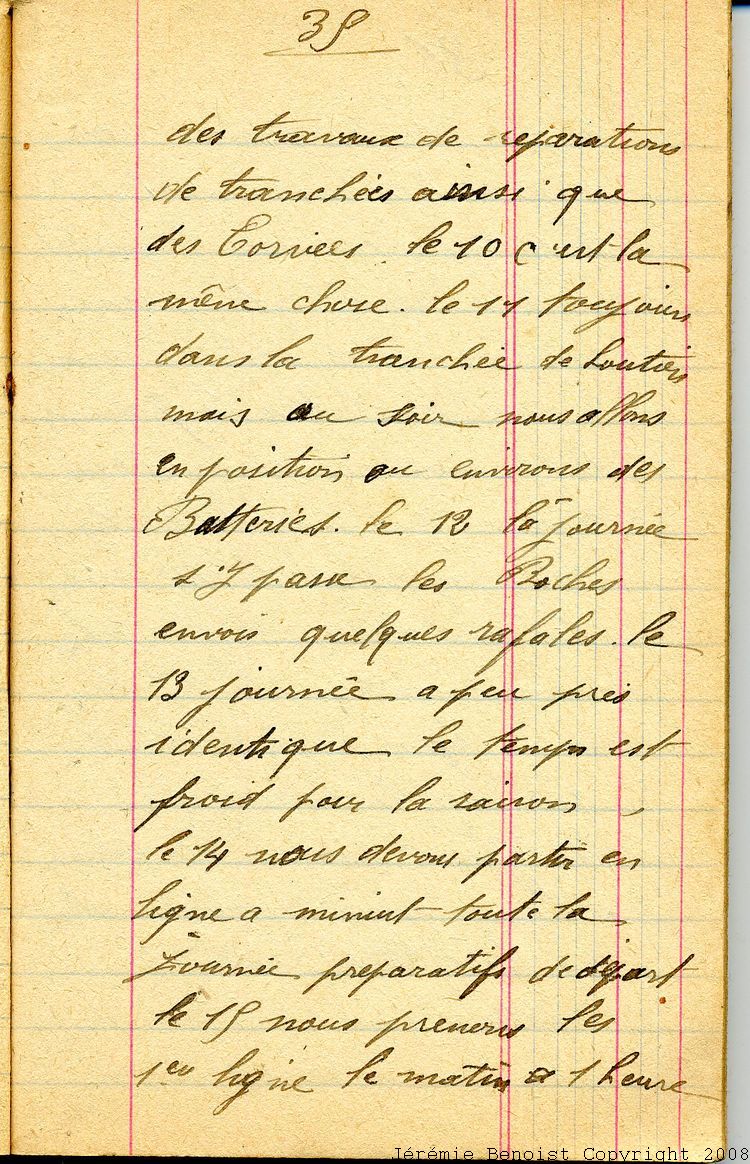 35
des travaux de reparations
de tranchées ainsi que
des Corvees. le 10 c'est la
même chose. le 11 toujours
dans la tranchée de soutien
mais au soir nous allons
en position au environs des
Batteries. le 12 la journée
s'y passe les Boches
envois quelques rafales. le
13 journée a peu près
identique le temps est
froid pour la saison,
le 14 nous devons partir en
ligne a minuit toute la
journée preparatifs de départ
le 15 nous prenons les
1eres ligne le matin a 1 heure
Jérémie Benoist Copyright 2008